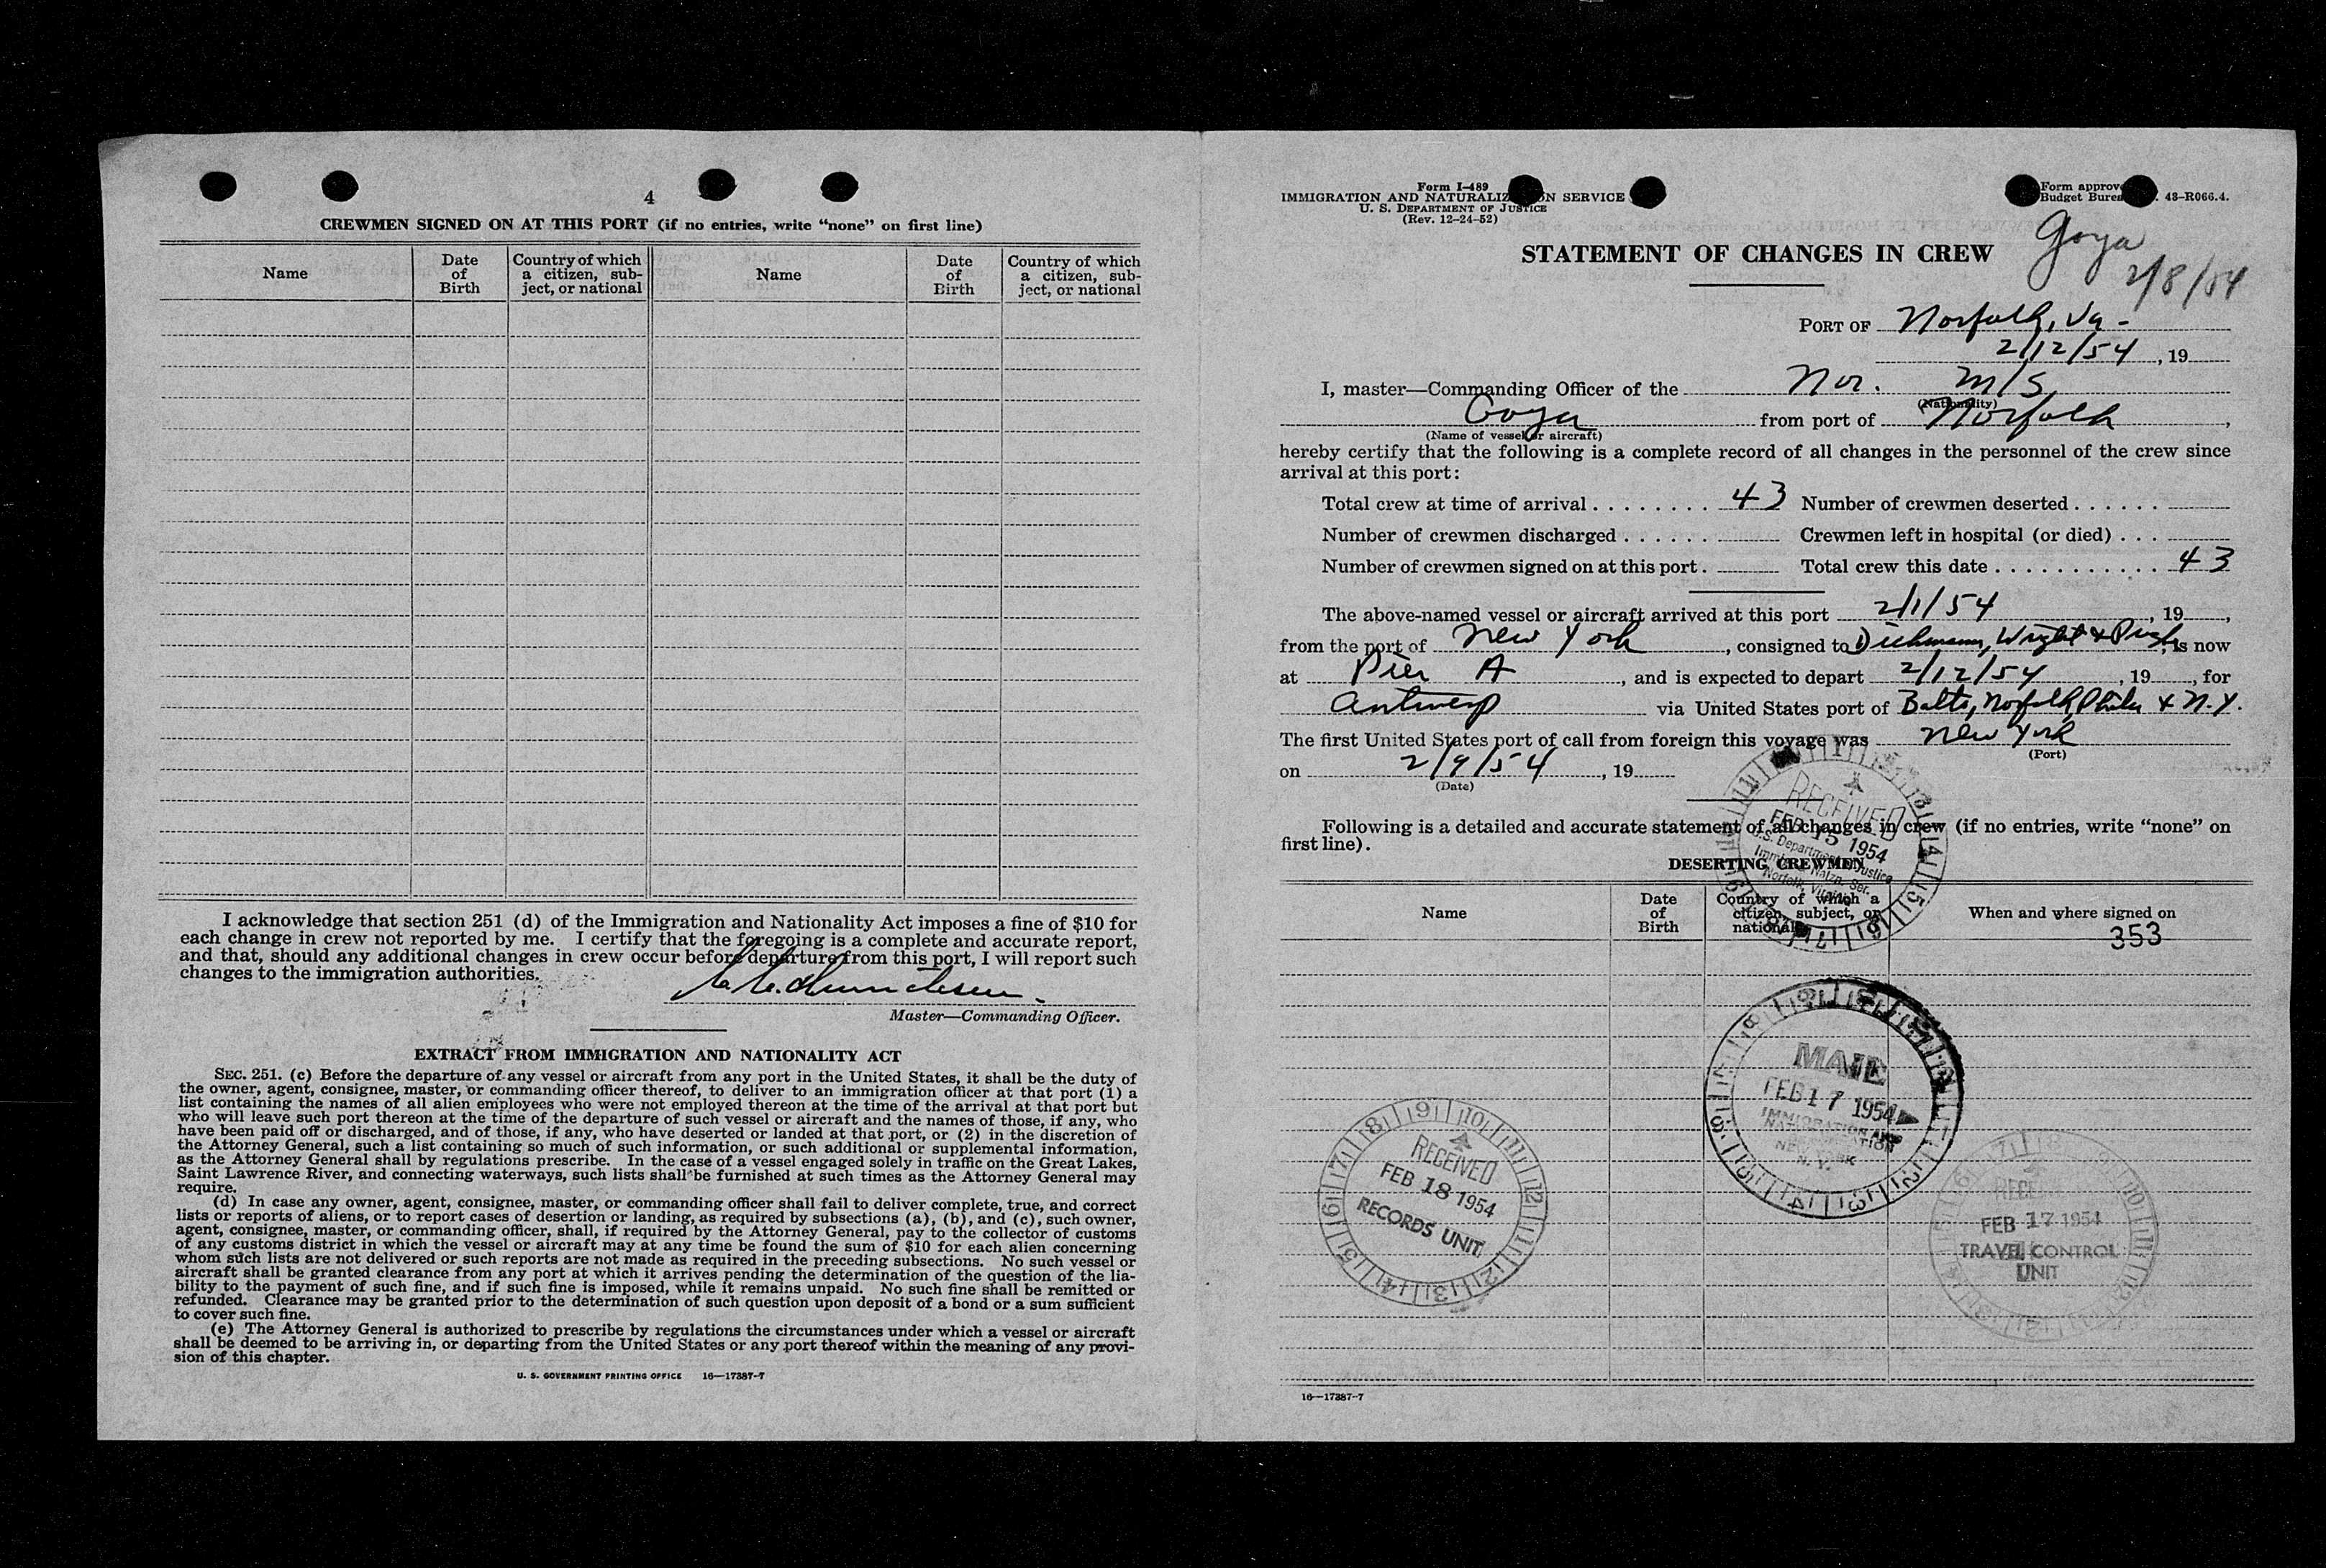 4
CREWMEN SIGNED ON AT THIS PORT (if no entries, write “none” on first line)
Name
Date of Birth
Country of which a citizen, subject, or national
Name
Date of Birth
Country of which a citizen, subject, or national
I acknowledge that section 251 (d) of the Immigration and Nationality Act imposes a fine of $10 for
each change in crew not reported by me. I certify that the foregoing is a complete and accurate report,
and that, should any additional changes in crew occur before departure from this port, I will report such
changes to the immigration authorities.
Master—Commanding Officer.
EXTRACT FROM IMMIGRATION AND NATIONALITY ACT
SEC. 251. (c) Before the departure of any vessel or aircraft from any port in the United States, it shall be the duty of
the owner, agent, consignee, master, or commanding officer thereof, to deliver to an immigration officer at that port (1) a
list containing the names of all alien employees who were not employed thereon at the time of the arrival at that port but
who will leave such port thereon at the time of the departure of such vessel or aircraft and the names of those, if any, who
have been paid off or discharged, and of those, if any, who have deserted or landed at that port, or (2) in the discretion of
the Attorney General, such a list containing so much of such information, or such additional or supplemental information,
as the Attorney General shall by regulations prescribe. In the case of a vessel engaged solely in traffic on the Great Lakes,
Saint Lawrence River, and connecting waterways, such lists shall be furnished at such times as the Attorney General may
require.
(d) In case any owner, agent, consignee, master, or commanding officer shall fail to deliver complete, true, and correct
lists or reports of aliens, or to report cases of desertion or landing, as required by subsections (a), (b), and (c), such owner,
agent, consignee, master, or commanding officer, shall, if required by the Attorney General, pay to the collector of customs
of any customs district in which the vessel or aircraft may at any time be found the sum of $10 for each alien concerning
whom such lists are not delivered or such reports are not made as required in the preceding subsections. No such vessel or
aircraft shall be granted clearance from any port at which it arrives pending the determination of the question of the lia-
bility to the payment of such fine, and if such fine is imposed, while it remains unpaid. No such fine shall be remitted or
refunded. Clearance may be granted prior to the determination of such question upon deposit of a bond or a sum sufficient
to cover such fine.
(e) The Attorney General is authorized to prescribe by regulations the circumstances under which a vessel or aircraft
shall be deemed to be arriving in, or departing from the United States or any port thereof within the meaning of any provi-
sion of this chapter.
U. S. GOVERNMENT PRINTING OFFICE 16—17387-7
Form I-489
IMMIGRATION AND NATURALIZATION SERVICE
U. S. DEPARTMENT OF JUSTICE
(Rev. 12-24-52)
Form approv
Budget Burea 43-R066.4.
Goya
2/8/54
STATEMENT OF CHANGES IN CREW
PORT OF Norfolk, Va.
2/12/54, 19
I, master—Commanding Officer of the Nor. M/S
(Nationality)
Goya from port of Norfolk,
(Name of vessel or aircraft)
hereby certify that the following is a complete record of all changes in the personnel of the crew since
arrival at this port:
Total crew at time of arrival 43 Number of crewmen deserted
Number of crewmen discharged Crewmen left in hospital (or died)
Number of crewmen signed on at this port. Total crew this date 43
The above-named vessel or aircraft arrived at this port 2/1/54, 19,
from the port of New York, consigned to Wright & Pugh, is now
at Pier A, and is expected to depart 2/12/54, 19, for
Antwerp via United States port of Balto, Norfolk, Phila & N.Y.
The first United States port of call from foreign this voyage was New York
(Port)
on 2/9/54, 19
(Date)
Following is a detailed and accurate statement of all changes in crew (if no entries, write “none” on
first line).
DESERTING CREWMEN
Name
Date of Birth
Country of which a citizen, subject, or national
When and where signed on
353
RECEIVED
FEB 15 1954
U.S. Department of Justice
Immig. & Natzn. Ser.
Norfolk, Virginia
MAIL
FEB 17 1954
IMMIGRATION AND
NATURALIZATION
NEW YORK
N. Y.
RECEIVED
FEB 18 1954
RECORDS UNIT
FEB 17 1954
TRAVEL CONTROL
UNIT
16—17387-7